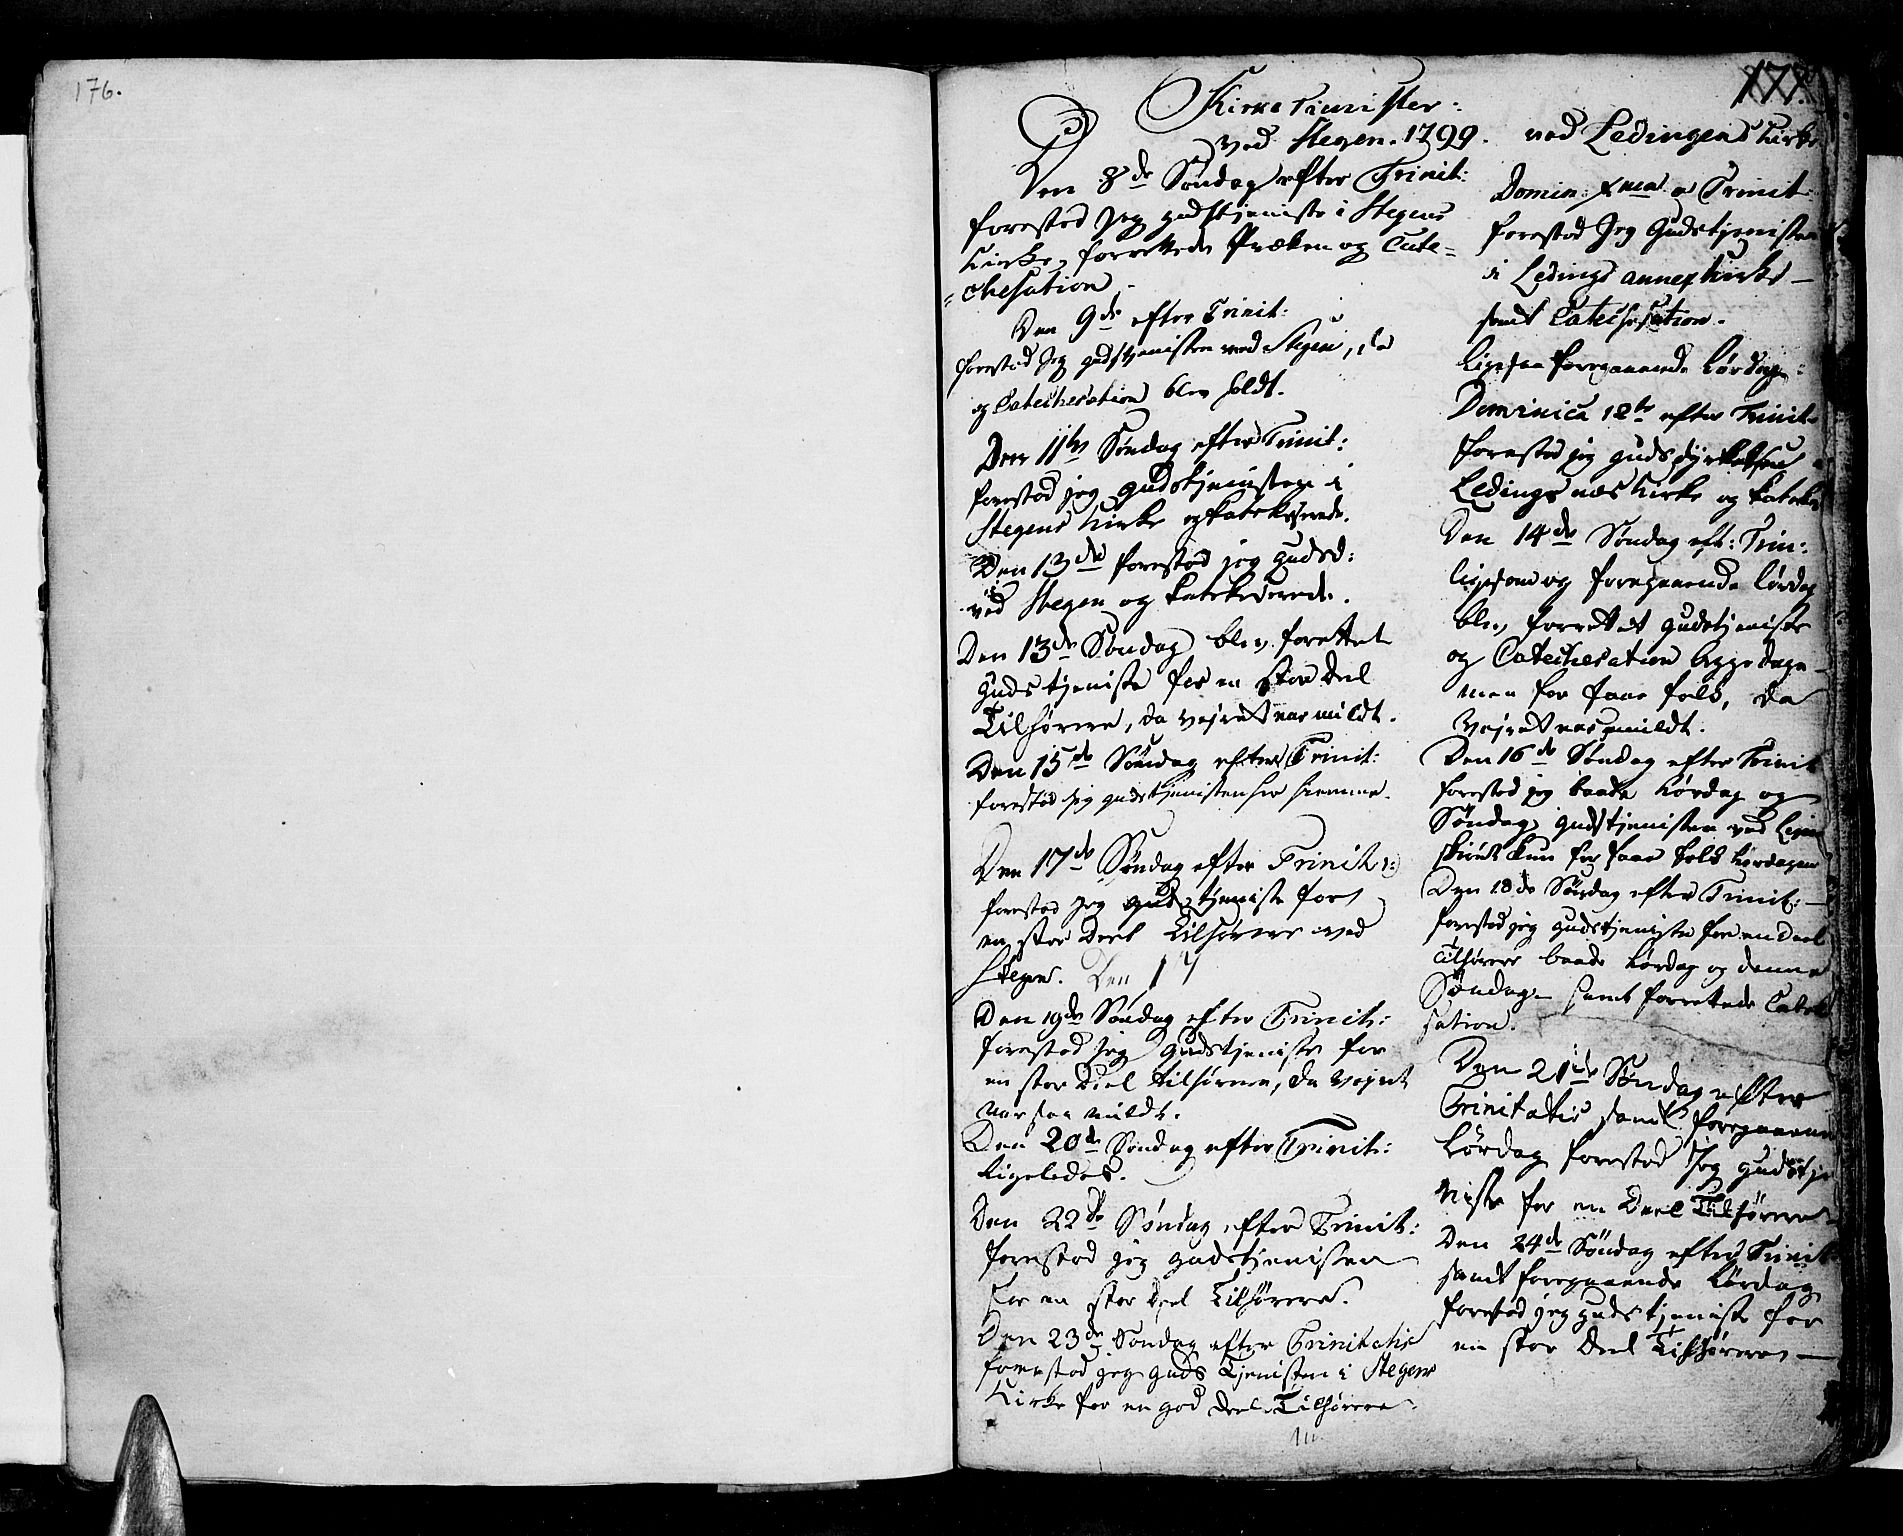 176.
177.
Kirke Tienister
ved Stegen. 1799.
Den 8de Søndag efter Trinit:
forestod Jeg gudstjeniste i Stegens
Kirke, forrettede Præken og Cate-
=chesation.
Den 9de efter Trinit:
forestod Jeg gudstjenisten ved Stegen, da
og Catechesation blev holdt.
Den 11te Søndag efter Trinit:
forestod jeg gudstjenisten i
Stegens Kirke og katekiserede.
Den 13de forestod jeg gudsd:
ved Stegen og katekiserede.
Den 13de Søndag blev forettet
Gudstjeniste for en stor Deel
Tilhørere, da Vejret var mildt.
Den 15de Søndag efter Trinit:
forestod Jeg gudstjenisten her hiemme.
Den 17de Søndag efter Trinit:
forestod Jeg gudstjeniste for
en stor Deel Tilhørere ved
Stegen. Den 17
Den 19de Søndag efter Trinit:
forestod Jeg Gudstjeniste for
en stor Deel tilhørere, da Vejret
var saa mildt.
Den 20de Søndag efter Trinit:
Ligeledes.
Den 22de Søndag efter Trinit:
forestod jeg gudstjenisten
for en stor Deel Tilhørere.
Den 23de Søndag efter Trinitatis
forestod jeg guds Tjenisten i Stegens
Kirke for en god Deel Tilhørere.
ved Ledingens Kirke
Domin: Xma a Trinit:
forestod Jeg Gudstjenisten
i Ledings annex Kirke —
samt Catechesation.
Ligesaa foregaaende Lørdag:
Dominica 12te efter Trinit.
forestod jeg gudsdyrkelsen
Ledings næs Kirke og
Den 14de Søndag eft: Trin:
ligesom og foregaaende Lørdag
blev forrettet gudstjeniste
og Catechesation begge dage
men for faae folk, da
Vejret var umildt.
Den 16de Søndag efter Trinit
forestod jeg baade Lørdag og
Søndag gudstjenisten ved
kun for faae folk Lørdagen
Den 18de Søndag efter Trinit: —
forestod jeg gudstjeniste for en Deel
Tilhørere baade Lørdag og denne
Søndag — samt forrettede Catek
sation.
Den 21de Søndag efter
Trinitatis samt foregaaende
Lørdag forestod Jeg gudstje
niste for en Deel Tilhørere
Den 24de Søndag efter Trinit:
samt foregaaende Lørdag
forestod jeg gudstjeniste for
en stor Deel Tilhørere —